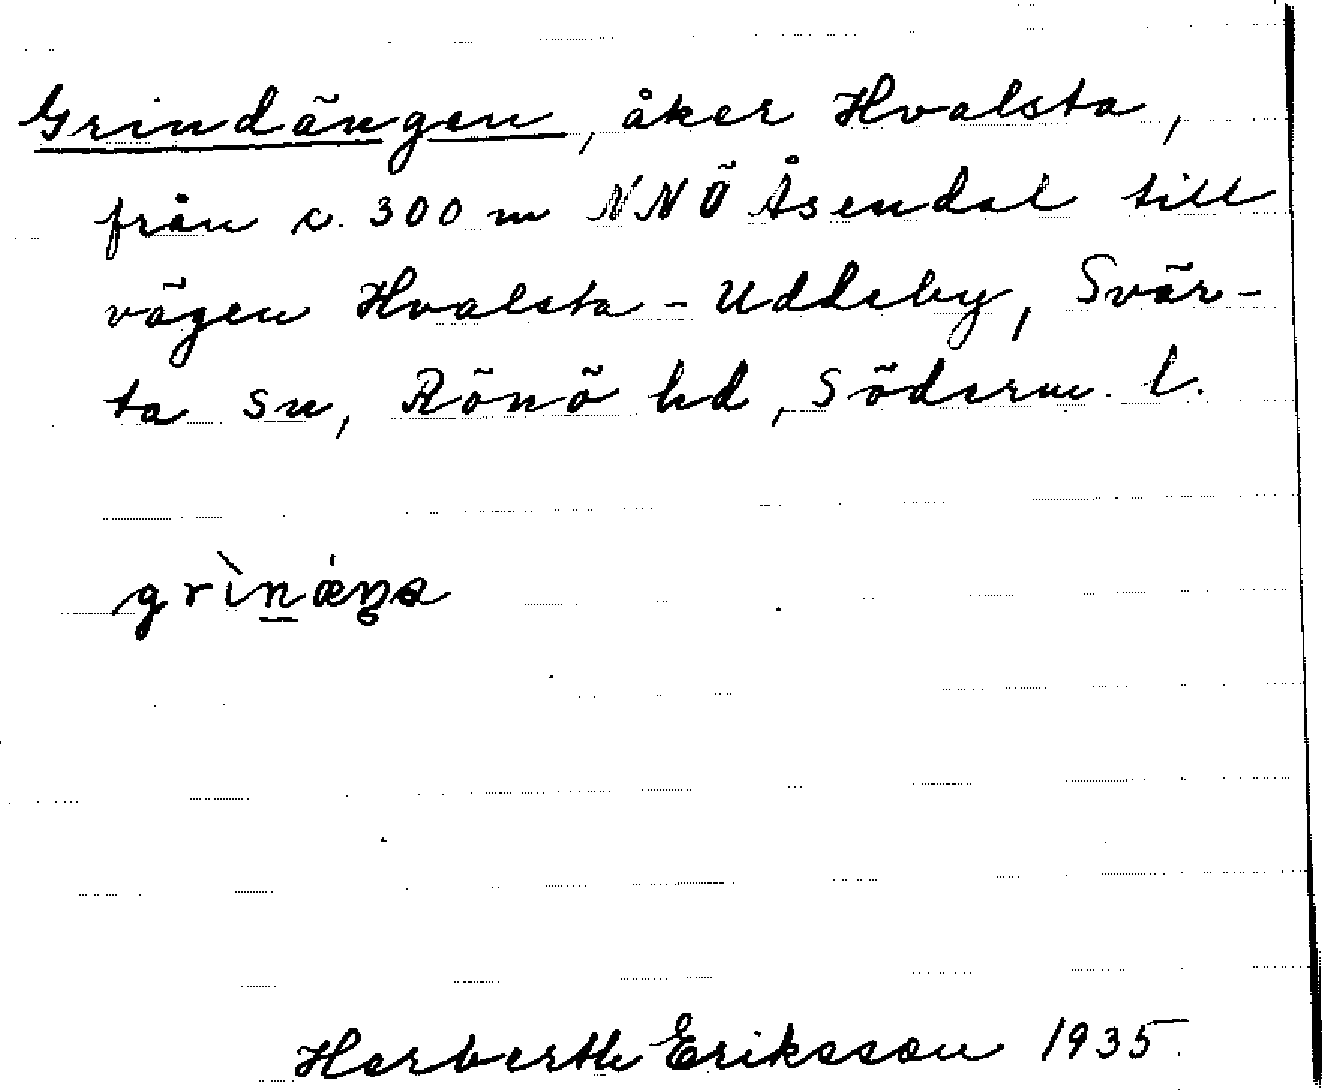 Grindängen, åker Hvalsta,
från c. 300 m NNÖ Åsendal till
vägen Hvalsta - Uddeby, Svär-
ta sn, Rönö hd, Söderm. l.
grìnǽŋa
Herberth Eriksson 1935.